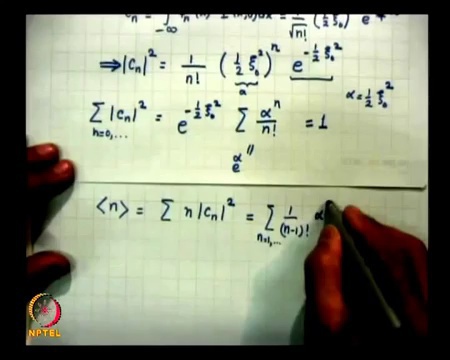 ⟹|Cₙ|² = 1/n! (½ ξ₀²)ⁿ e^(-½ ξ₀²)
α
α = ½ ξ₀²
Σ_{n=0,...} |Cₙ|² = e^(-½ ξ₀²) Σ αⁿ/n! = 1
e^α
⟨n⟩ = Σ n |Cₙ|² = Σ_{n=1,...} 1/(n-1)! α
NPTEL